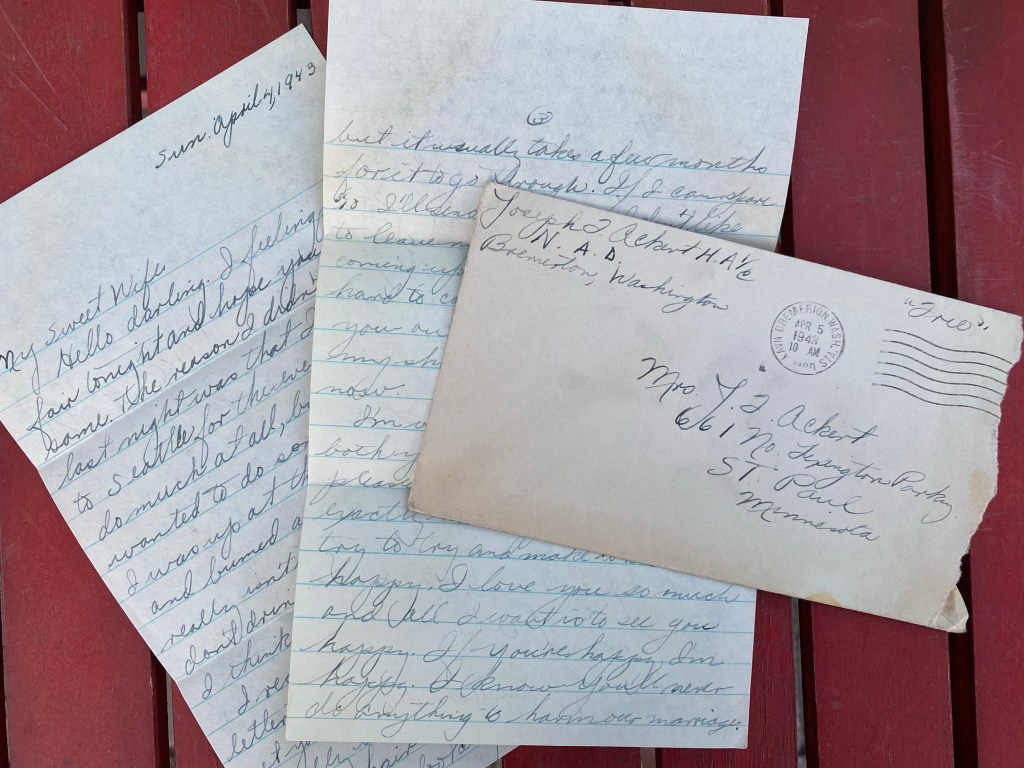 Sun. April 4, 1943
My Sweet Wife
Hello darling. I feeling
fair tonight and hope you
same. The reason I didn't
last night was that I
to Seattle for the eve
do much at all, b
wanted to do so
I was up at th
and bumed a
really isn't
don't drin
I think
I re
letter
3
but it usually takes a few months
for it to go through. If I can spar
I'll send like
to leave m
coming up
hard to c
you ou
my sh
now.
I'm
both
plea
exact
try to try and make
happy. I love you so much
and all I want is to see you
happy. If you're happy I'm
happy. I know you'll never
do anything to harm our marriage.
Joseph J Ackert H.A. 1/c
N. A. D.
Bremerton, Washington
"Free".
NAVY BREMERTON, WASH. STA.
APR 5
1943
10 AM
YARD
Mrs. J. J Ackert
661 No. Lexington Parky
ST. Paul
Minnesota